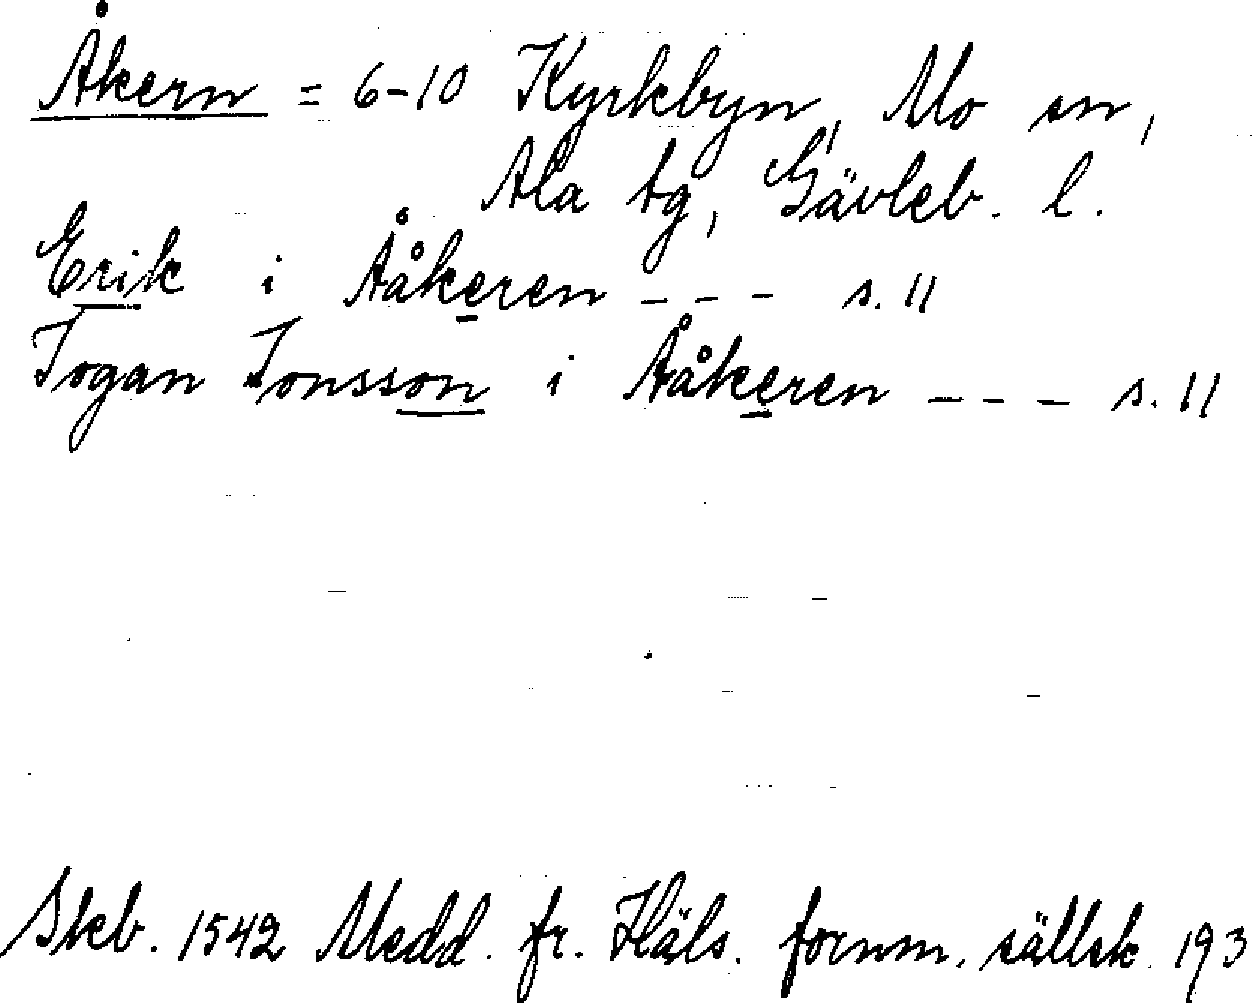 Åkern = 6-10 Kyrkbyn, Mo sn,
Ala tg, Gävleb. l.
Erik i Ååkeren --- s. 11
Jogan Jonsson i Ååkeren --- s. 11
Skb. 1542 Medd. fr. Häls. fornm. sällsk. 193